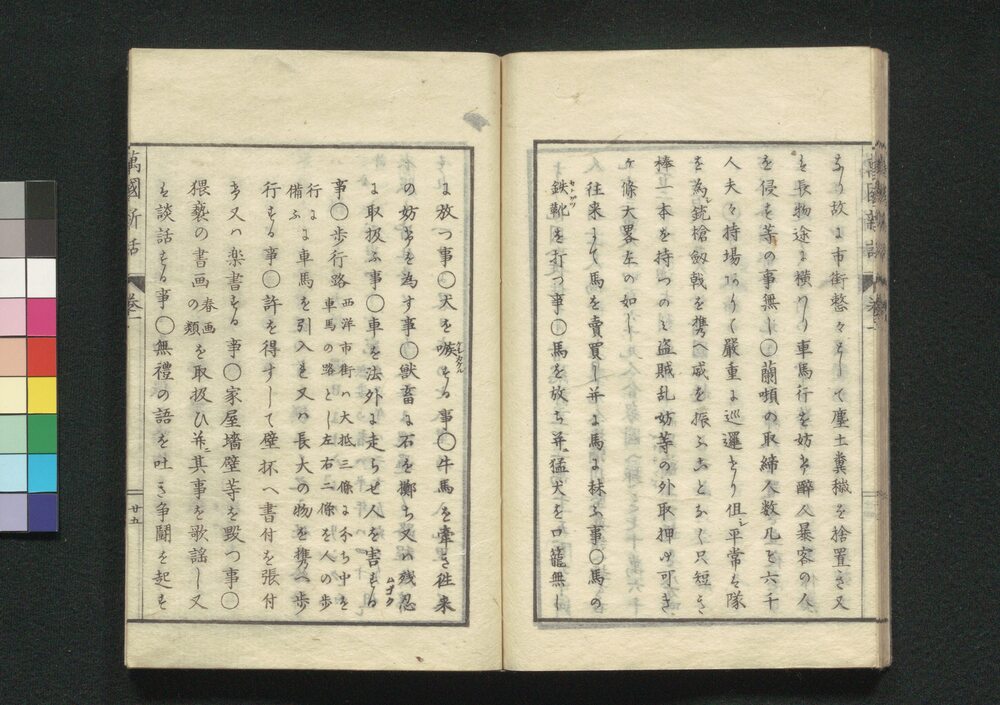 なり故に市街整々として塵土糞穢を捨置き又
は長物途に横り車馬行を妨け醉人暴客の人
を侵す等の事無し〇蘭頓の取締人数凡そ六千
人夫々持場ありて嚴重に巡邏をり伹シ平常は隊
を為し銃槍劔戟を携へ威を振ふことなく只短き
棒一本を持つのミ盗賊乱妨等の外取押ゆ可き
ヶ條大畧左の如し
往来にて馬を賣買し并に馬に秣ふ事〇馬の
鉄靴を打つ事〇馬を放ち并ニ猛犬を口籠無し
萬國新話 巻一 廿五
に放つ事〇犬を嗾ケシカケルする事〇牛馬を牽き徃来
の妨けを為す事〇獣畜に石を擲ち又ハ残忍ムゴク
に取扱ふ事〇車を法外に走らせ人を害する
事〇歩行路西洋市街ハ大抵三條に分ち中を車馬の路とし左右二條を人の歩
行に備ふに車馬を引入れ又ハ長大の物を携へ歩
行する事〇許を得すして壁抔へ書付を張付
け又ハ楽書する事〇家屋墻壁等を毀つ事〇
猥褻の書画春画の類を取扱ひ并ニ其事を歌謡し又
は談話する事〇無禮の語を吐き争闘を起す